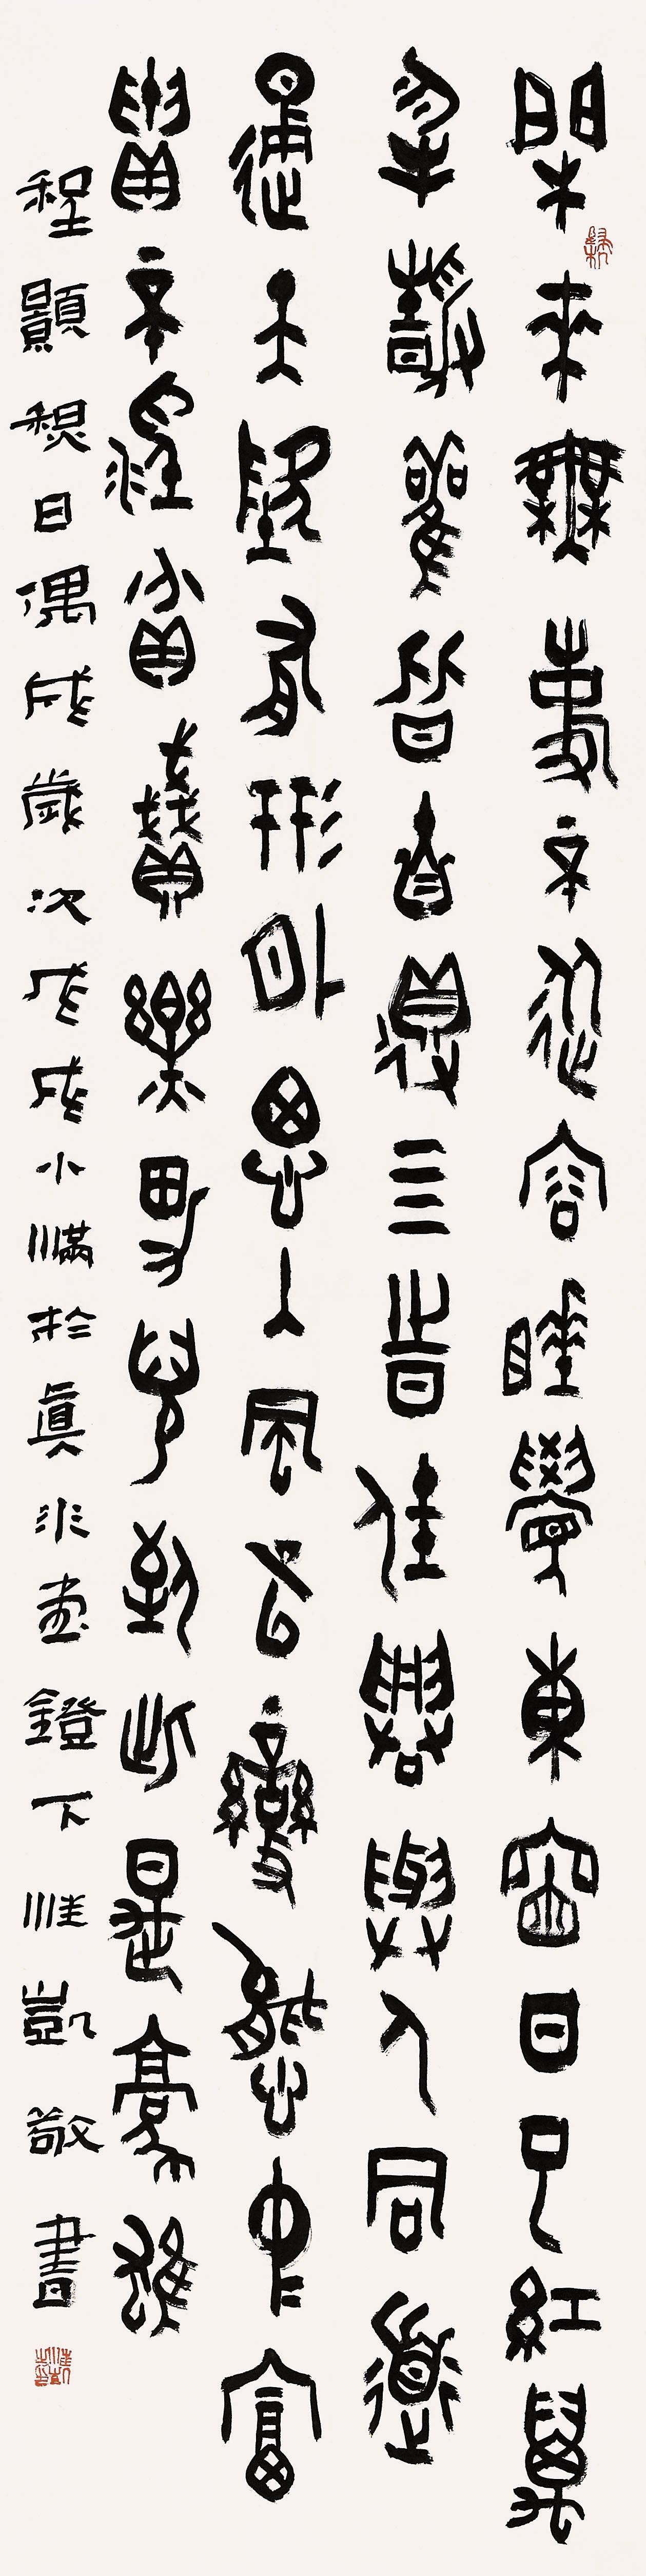 閑來無事不從容睡覺東窗日已紅萬
物靜觀皆自得四時佳興與人同道
通天地有形外思入風雲變態中富
貴不淫貧賤樂男兒到此是豪雄
程顥秋日偶成歲次戊戌小滿於眞鐙下淮凱敬書